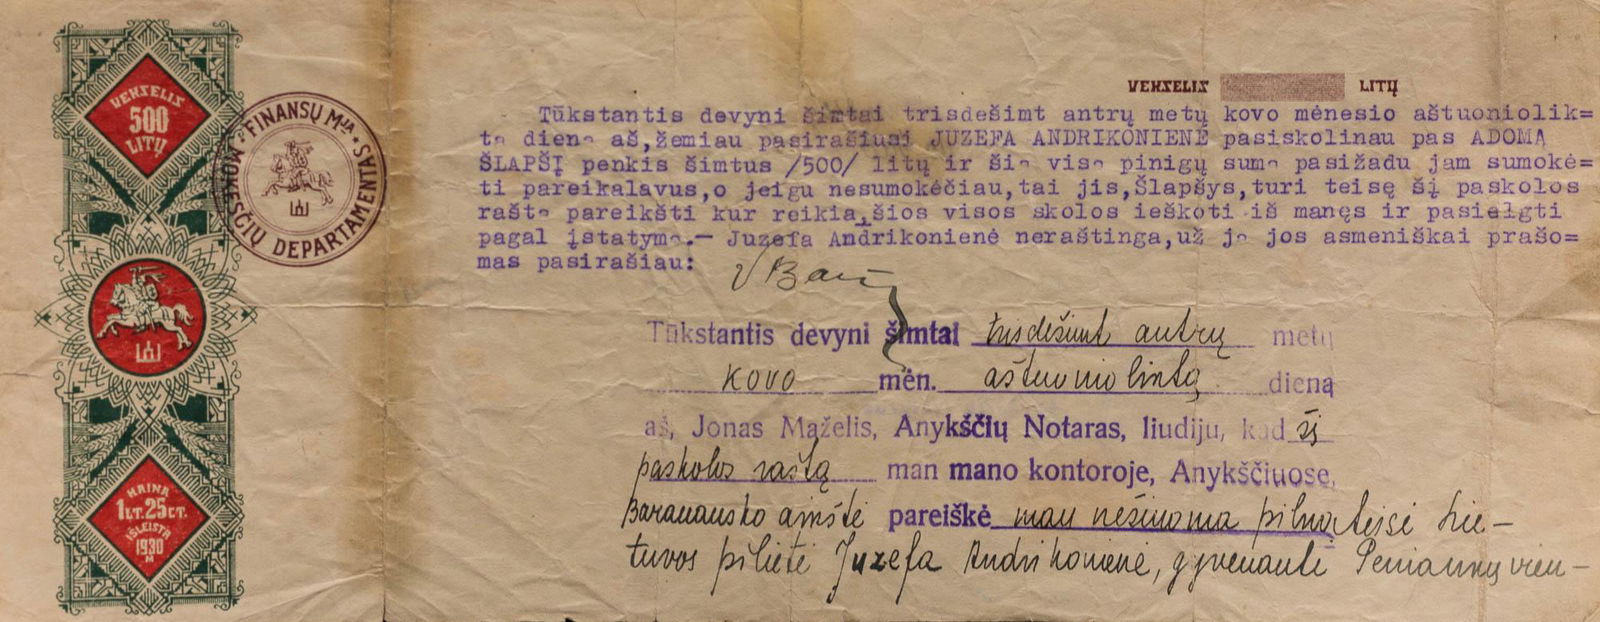 VEKSELIS
500
LITŲ
FINANSŲ M-JA
MOKESČIŲ DEPARTAMENTAS
KAINA
1 LT. 25 CT.
IŠLEISTA
1930
M
VEKSELIS LITŲ
Tūkstantis devyni šimtai trisdešimt antrų metų kovo mėnesio aštuoniolik=
tą dieną aš,žemiau pasirašiusi JUZEFA ANDRIKONIENĖ pasiskolinau pas ADOMĄ
ŠLAPŠĮ penkis šimtus /500/ litų ir šią visą pinigų sumą pasižadu jam sumokė=
ti pareikalavus,o jeigu nesumokėčiau,tai jis,Šlapšys,turi teisę šį paskolos
raštą pareikšti kur reikia,šios visos skolos ieškoti iš manęs ir pasielgti
pagal įstatymą.— Juzefa Andrikonienė neraštinga,už ją jos asmeniškai prašo=
mas pasirašiau:
Tūkstantis devyni šimtai trisdešimt antrų metų
kovo mėn. aštuoniolintą dieną
aš, Jonas Mąželis, Anykščių Notaras, liudiju, kad šį
paskolos raštą man mano kontoroje, Anykščiuose,
Baranausko aikštė pareiškė man nežinoma pilnateisė Lie–
tuvos pilietė Juzefa Andrikonienė, gyvenanti Peniankų vien–